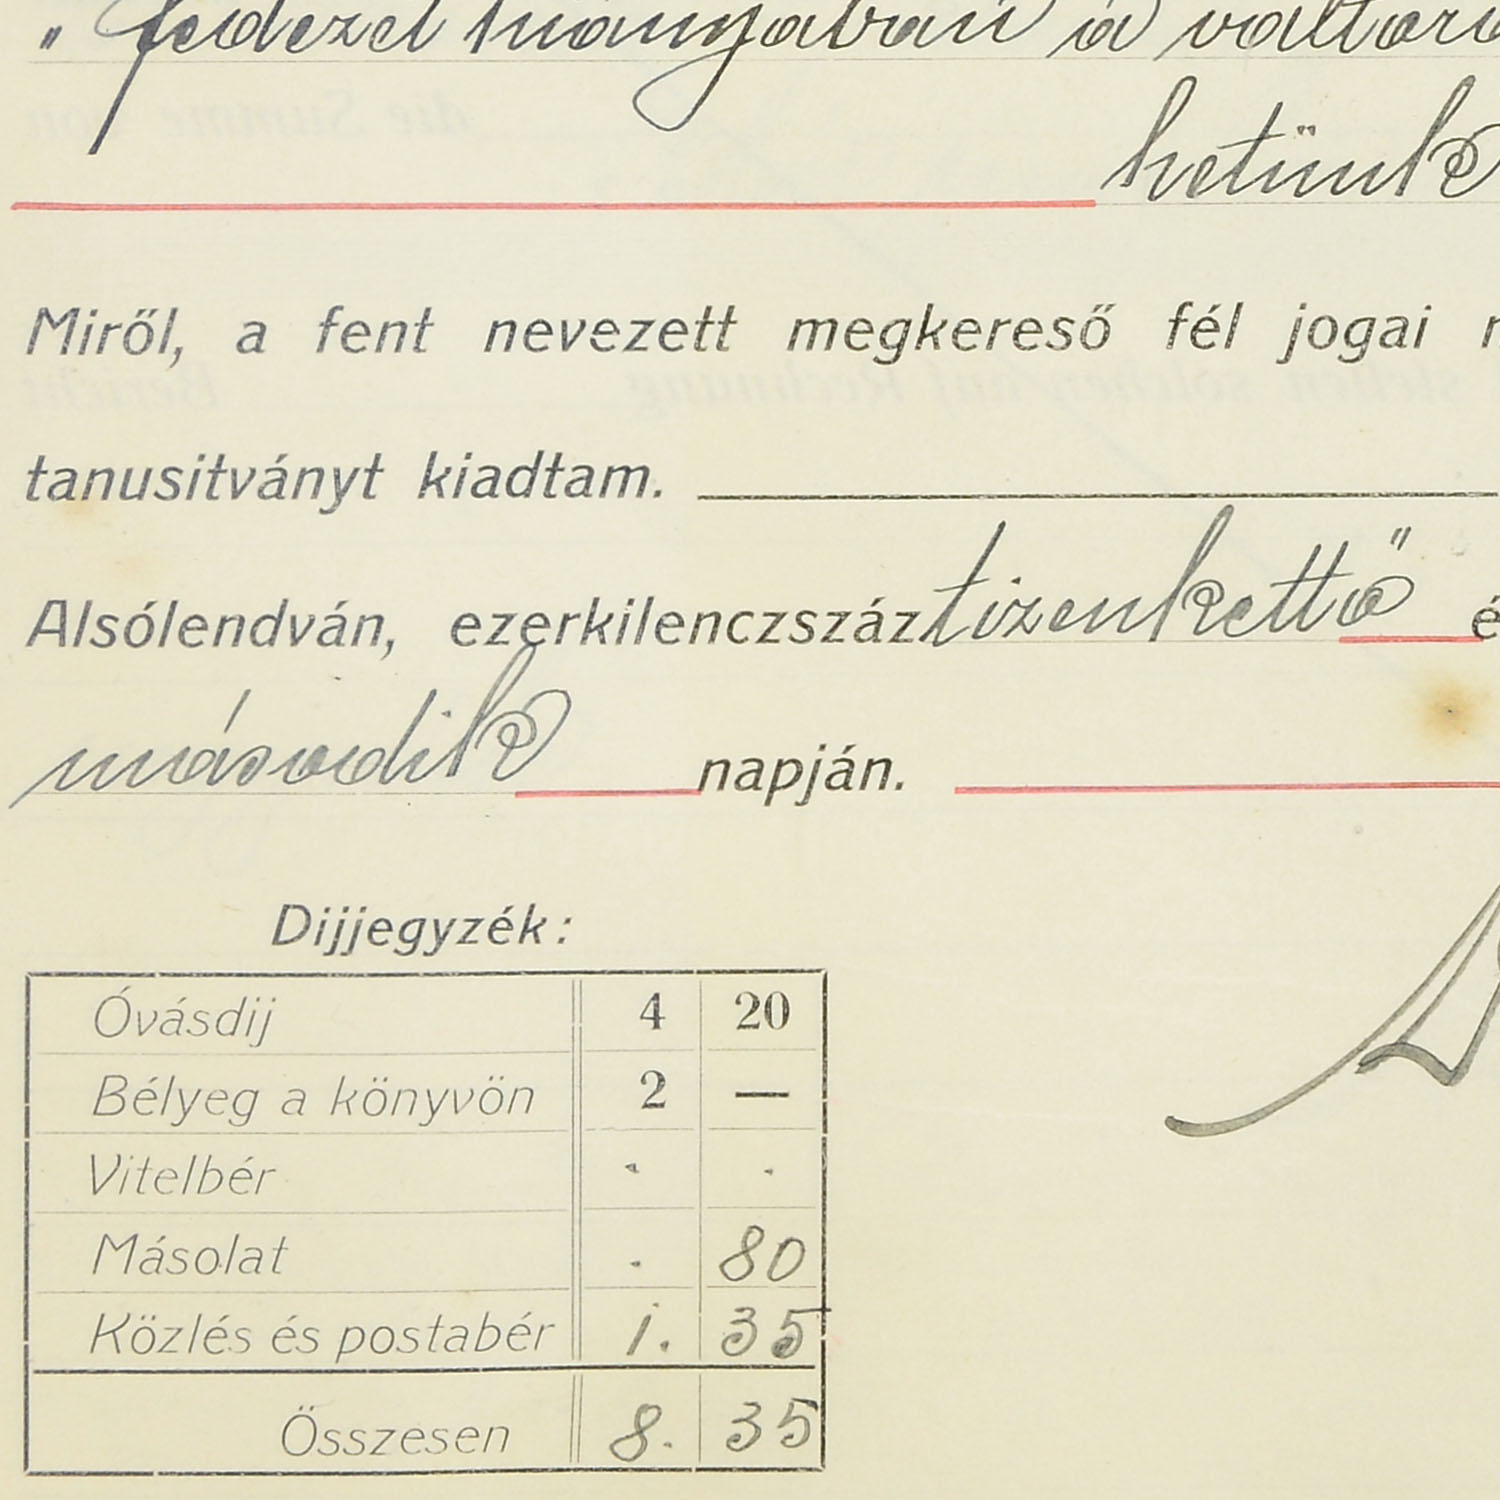 „ fedezet hiányában a váltóra
hetünk
Miről, a fent nevezett megkereső fél jogai
tanusitványt kiadtam.
Alsólendván, ezerkilenczszáztizenkettő é
második napján.
Dijjegyzék:
Óvásdij 4 20
Bélyeg a könyvön 2 —
Vitelbér . .
Másolat . 80
Közlés és postabér 1. 35
Összesen 8. 35